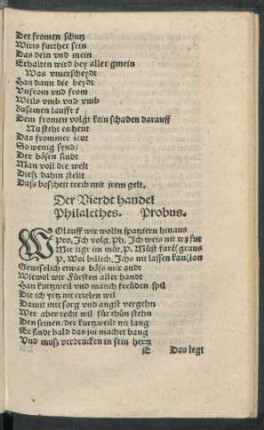 Der fromen schutz
Wirts further sein
Das dein vnd mein
Erhalten wird bey aller gmein
Was vnuerscheydt
Han dann die beyd
Vnfrom vnd from
Weils vmb vnd vmb
Zusamen laufft
Dem fromen volgt kein schaden darauff
Nu steht es heut
Das frommer leut
So wenig synd/
Der bösen sindt
Man voll die welt
Dieß dahin stelt
Daß boßheit treib mit irem gelt.
Der Vierdt handel
Philalethes. Probus.
Wolauff wir wolln spatziern hinaus
Pro. Ich volg. Ph. Ich weis nit wz fur
Mir ligt im mut. P.
P. Wol billich. Ichs nit lassen kan/
Gewißlich etwas böß mir andt
Wiewol wir Fürsten aller handt
Han kurtzweil vnd manch freüden spil
Die ich yetz nit erzelen wil
Damit mit sorg vnd angst vergehn
Wer aber recht wil für thün stehn
Den seinen/der kurtzweil nit lang
Er findt bald das zu macher bang
Vnd muß verdrücken in sein hertz
E Das legt